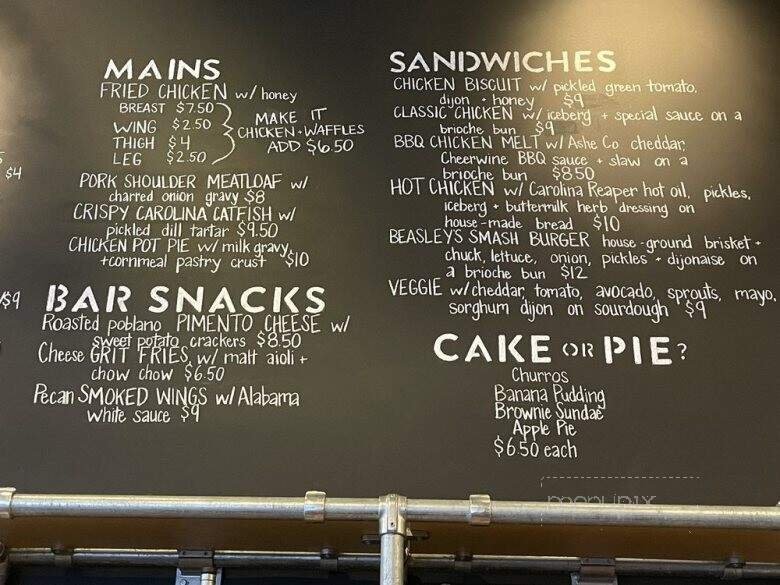 MAINS
FRIED CHICKEN w/ honey
BREAST $7.50
WING $2.50
THIGH $4
LEG $2.50
MAKE IT
CHICKEN + WAFFLES
ADD $6.50
PORK SHOULDER MEATLOAF w/
charred onion gravy $8
CRISPY CAROLINA CATFISH w/
pickled dill tartar $9.50
CHICKEN POT PIE w/ milk gravy
+cornmeal pastry crust $10
BAR SNACKS
Roasted poblano PIMENTO CHEESE w/
sweet potato crackers $8.50
Cheese GRIT FRIES w/ malt aioli +
chow chow $6.50
Pecan SMOKED WINGS w/ Alabama
white sauce $9
SANDWICHES
CHICKEN BISCUIT w/ pickled green tomato,
dijon + honey $9
CLASSIC CHICKEN w/ iceberg + special sauce on a
brioche bun $9
BBQ CHICKEN MELT w/ Ashe Co cheddar,
Cheerwine BBQ sauce + slaw on a
brioche bun $8.50
HOT CHICKEN w/ Carolina Reaper hot oil, pickles,
iceberg + buttermilk herb dressing on
house-made bread $10
BEASLEY'S SMASH BURGER house-ground brisket +
chuck, lettuce, onion, pickles + dijonaise on
a brioche bun $12
VEGGIE w/ cheddar, tomato, avocado, sprouts, mayo,
sorghum dijon on sourdough $9
CAKE OR PIE?
Churros
Banana Pudding
Brownie Sundae
Apple Pie
$6.50 each
$4
$9
menupix